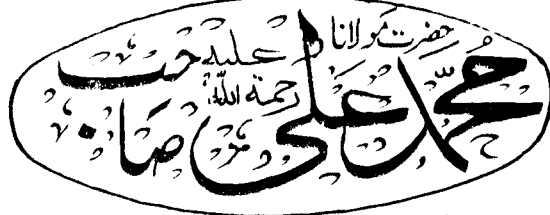 حضرت مولانا محمد علی صاحب رحمة اللہ علیہ